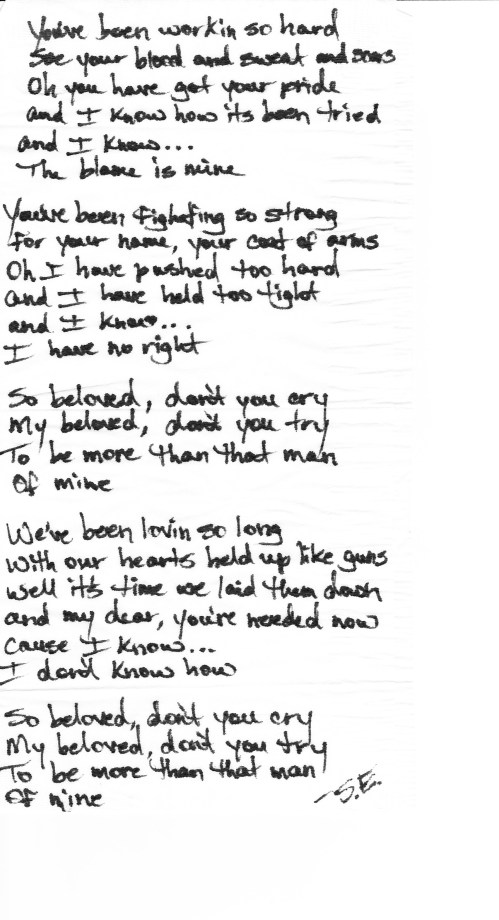 You've been workin so hard
See your blood and sweat and scars
Oh you have got your pride
and I know how its been tried
and I know...
The blame is mine
You've been fighting so strong
for your name, your coat of arms
Oh I have pushed too hard
and I have held too tight
and I know...
I have no right
So beloved, don't you cry
My beloved, don't you try
To be more than that man
Of mine
We've been lovin so long
With our hearts held up like guns
Well it's time we laid them down
and my dear, you're needed now
cause I know...
I don't know how
So beloved, don't you cry
My beloved, don't you try
To be more than that man
Of mine
-S.E.